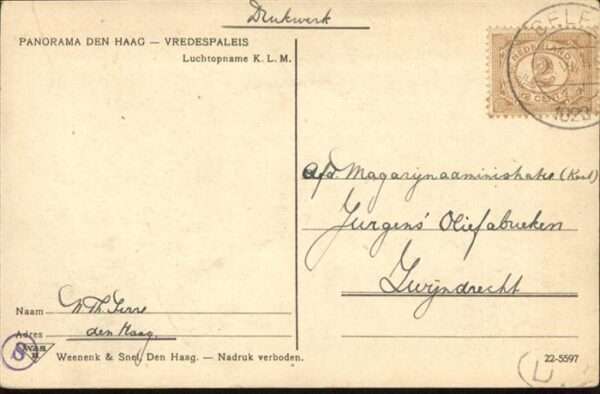 Drukwerk
PANORAMA DEN HAAG — VREDESPALEIS
Luchtopname K. L. M.
NEDERLAND
2
CENT
Afd. Magazijnadministratie (Kort)
Jurgens' Oliefabrieken
Zwijndrecht
Naam
Adres den Haag.
Weenenk & Snel, Den Haag. — Nadruk verboden.
22-5597